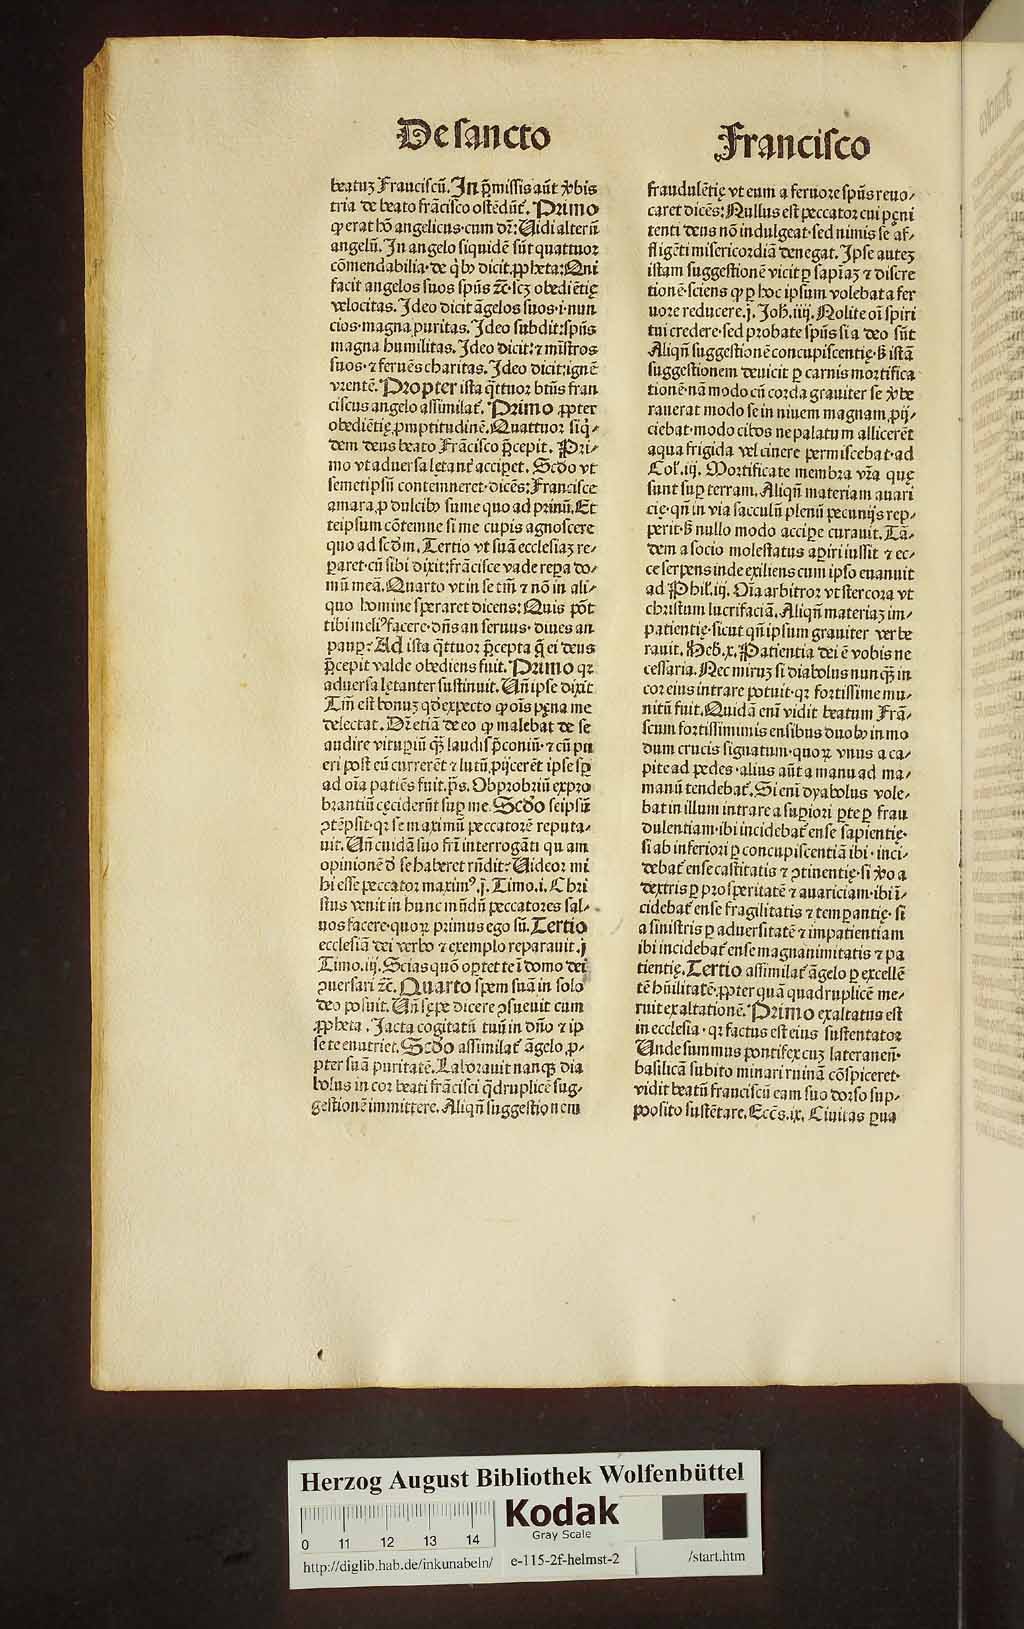 De sancto
beatuʒ Franciscū. In p̄missis aūt v̾bis
tria de beato frācisco ostēdūt̉. Primo
ꝙ erat hō angelicus. cum dr̄: Uidi alterū
angelū. In angelo siquidē sūt quattuor
cōmendabilia. de q̄bꝰ dicit ꝓpheta: Qui
facit angelos suos spūs ⁊c̄. scʒ obediētię
velocitas. Ideo dicit āgelos suos .i. nun
cios. magna puritas. Ideo subdit: spūs
magna humilitas. Ideo dicit: ⁊ mīstros
suos. ⁊ feruēs charitas. Ideo dicit: ignē
vrentē. Propter ista q̄ttuor btūs fran
ciscus angelo assimilat̉. Primo ꝓpter
obediētię ꝓmptitudinē. Quattuor siq̄-
dem deus beato Frācisco p̄cepit. Pri-
mo vt aduersa letant̉ accipet. Scd̄o vt
semetipsū contemneret. dicēs: Francisce
amara ꝓ dulcibꝰ sume quo ad primū. Et
teipsum cōtemne si me cupis agnoscere
quo ad scd̄m. Tertio vt suā ecclesiaʒ re-
paret. cū sibi dixit: frācisce vade repa do-
mū meā. Quarto vt in se tm̄ ⁊ nō in ali-
quo homine speraret dicens: Quis pōt
tibi meliꝰ facere. dn̄s an seruus. diues an
paup: Ad ista q̄ttuor p̄cepta q̄ ei deus
p̄cepit valde obediens fuit. Primo qꝛ
aduersa lętanter sustinuit. Un̄ ipse dixit
Tm̄ est bonuʒ qd̄ expecto ꝙ oīs pęna me
delectat. Dr̄ etiā de eo ꝙ malebat de se
audire vitupiū qʒ̄ laudis p̄coniū. ⁊ cū pu
eri post eū currerēt ⁊ lutū ꝓijcerēt ipse sp̄
ad oīa patiēs fuit. p̄s. Obprobriū expro
brantiū cęciderūt sup me. Scd̄o seipsū
ꝯtēpsit. qꝛ se maximū peccatorē reputa-
uit. Un̄ cuidā suo fr̄i interrogāti quam
opinionē d̄ se haberet rn̄dit: Uideor mi
hi esse peccator maximꝰ. j. Timo. i. Chri
stus venit in hunc mūdū peccatores sal-
uos facere. quoꝝ primus ego sū. Tertio
ecclesiā dei verbo ⁊ exemplo reparauit. j
Timo. iij. Scias quō oꝑtet te ī domo dei
ꝯuersari ⁊c̄. Quarto spem suā in solo
deo posuit. Un̄ sępe dicere ꝯsueuit cum
ꝓpheta. Iacta cogitatū tuū in dn̄o ⁊ ip
se te enutriet. Scd̄o assimilat̉ āgelo ꝓ-
pter suā puritatē. Laborauit nanqʒ dia
bolus in cor beati frācisci q̄druplicē sug-
gestionē immittere. Aliqn̄ suggestionem
Francisco
fraudulētię vt eum a feruore spūs reuo-
caret dicēs: Nullus est peccator cui pęni
tenti deus nō indulgeat. sed nimis se af-
fligēti misericordiā denegat. Ipse auteʒ
istam suggestionē vicit ꝑ sapiaʒ ⁊ discre
tionē. sciens ꝙ ꝑ hoc ipsum volebat a fer
uore reducere. j. Joh̄. iiij. Nolite oī spiri
tui credere. sed probate spūs si a deo sūt
Aliqn̄ suggestionē concupiscentię. sʒ istā
suggestionem deuicit ꝑ carnis mortifica
tionē. nā modo cū corda grauiter se v̾be
rauerat modo se in niuem magnam ꝓij-
ciebat. modo cibos ne palatum allicerēt
aqua frigida vel cinere permiscebat. ad
Col̄. iij. Mortificate membra vr̄a quę
sunt sup terram. Aliqn̄ materiam auari
cię. qn̄ in via sacculū plenū pecunijs rep-
perit. sʒ nullo modo accipe curauit. Tā-
dem a socio molestatus apiri iussit ⁊ ec-
ce serpens inde exiliens cum ipso euanuit
ad Phil̄. iij. Oīa arbitror vt stercora vt
christum lucrifaciā. Aliqn̄ materiaʒ im-
patientię. sicut qn̄ ipsum grauiter verbe
rauit. Heb̄. x. Patientia dei ē vobis ne
cessaria. Nec miruʒ si diabolus nunqʒ̄ in
cor eius intrare potuit. qꝛ fortissime mu-
nitū fuit. Quidā eni vidit beatum Frā-
scum fortissimimis ensibus duobꝰ in mo
dum crucis signatum. quoꝝ vnus a ca-
pite ad pedes. alius aūt a manu ad ma-
manū tendebat̉. Si eni dyabolus vole-
bat in illum intrare a supiori ꝑte ꝑ frau
dulentiam. ibi incidebat̉ ense sapientię.
si ab inferiori ꝑ concupiscentiā ibi. inci-
debat̉ ense castitatis ⁊ ꝯtinentię. si v̾o a
dextris ꝑ prosperitatē ⁊ auariciam. ibi ī-
cidebat̉ ense fragilitatis ⁊ tempantię. si
a sinistris ꝑ aduersitatē ⁊ impatientiam
ibi incidebat̉ ense magnanimitatis ⁊ pa
tientię. Tertio assimilat̉ āgelo ꝑ excellē
tē hūilitatē. ꝓpter quā quadruplicē me-
ruit exaltationē. Primo exaltatus est
in ecclesia. qꝛ factus est eius sustentator
Unde summus pontifex cuʒ lateraneñ.
basilicā subito minari ruinā cōspiceret.
vidit beatū franciscū eam suo dorso sup-
posito sustētare. Eccs̄. ix. Ciuitas ꝑua
Herzog August Bibliothek Wolfenbüttel
0 11 12 13 14
Kodak
Gray Scale
http://diglib.hab.de/inkunabeln/ e-115-2f-helmst-2 /start.htm